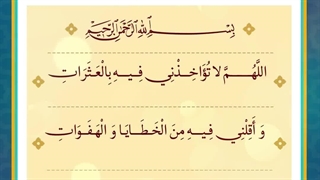 بِسْمِ اللهِ الرَّحْمٰنِ الرَّحِيْمِ
اللَّهُمَّ لا تُؤَاخِذْنِي فِيهِ بِالْعَثَرَاتِ
وَ أَقِلْنِي فِيهِ مِنَ الْخَطَايَا وَ الْهَفَوَاتِ